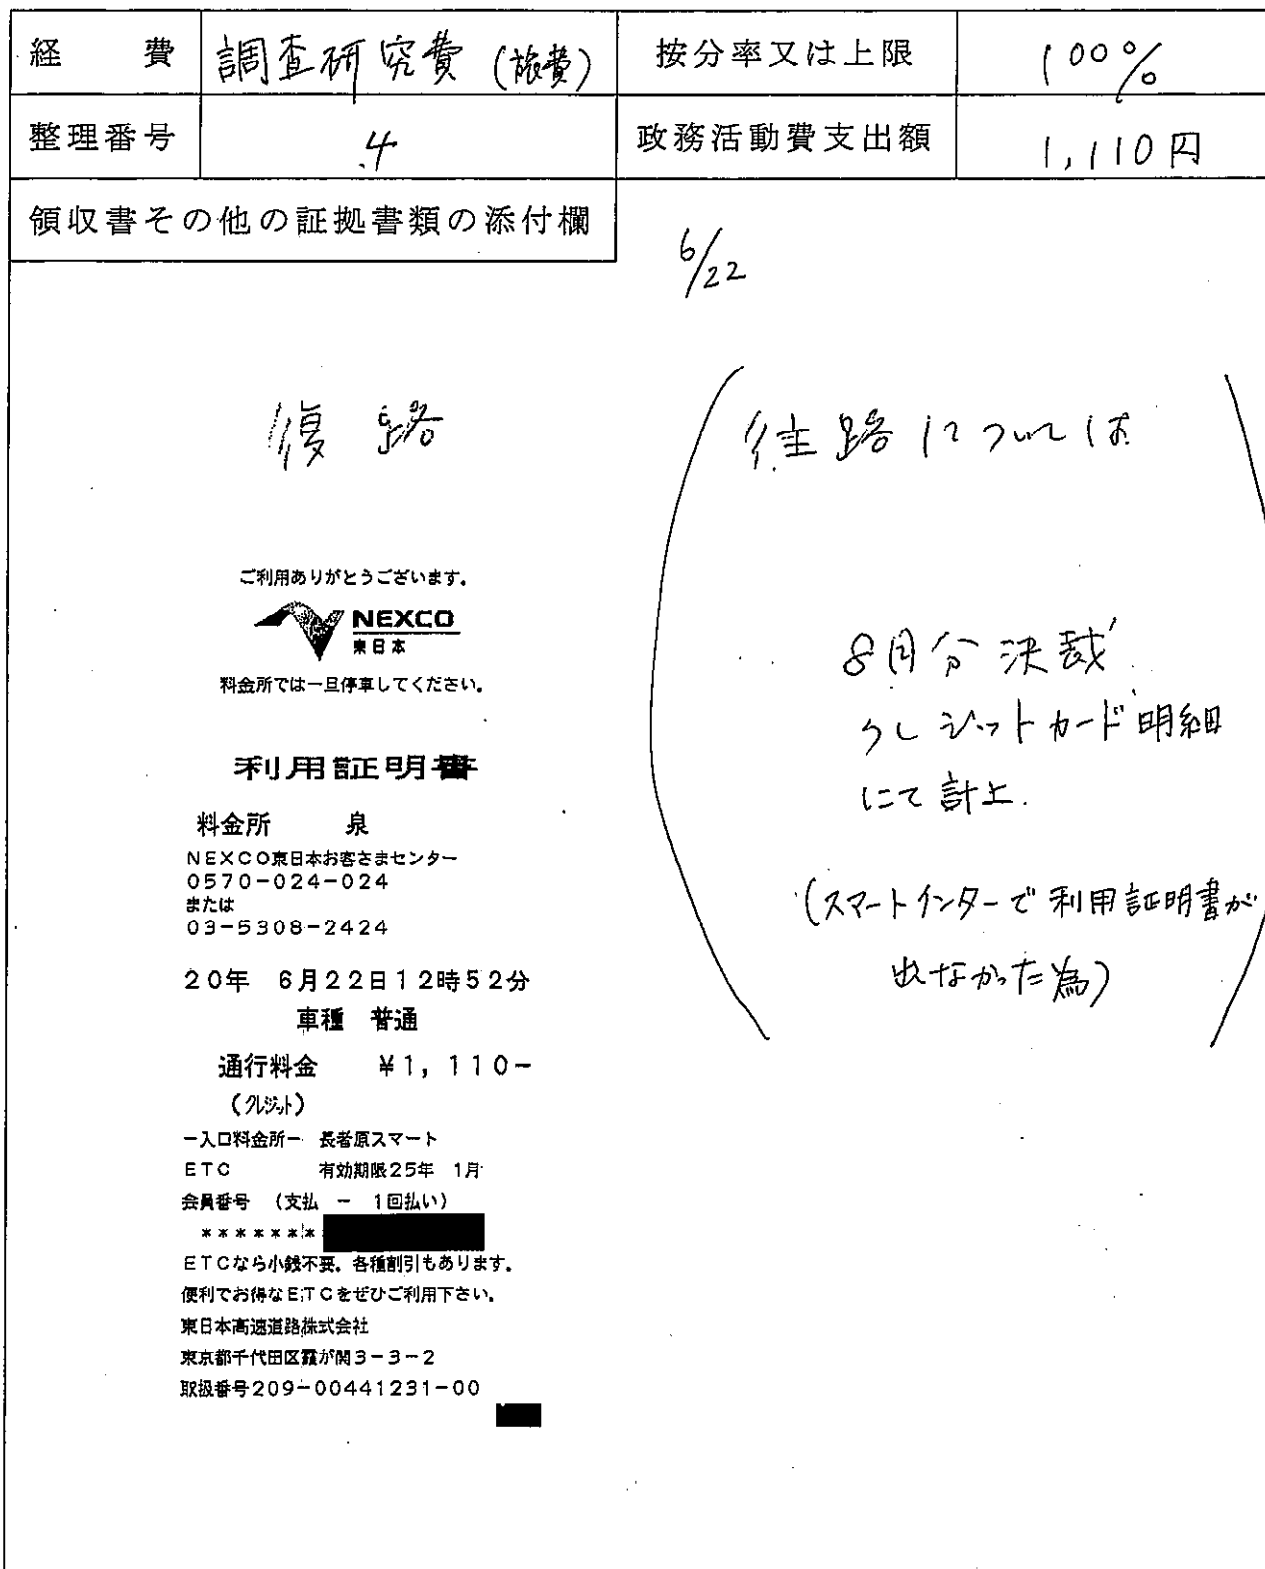 経 費 調査研究費 (旅費) 按分率又は上限 100%
整理番号 4 政務活動費支出額 1,110円
領収書その他の証拠書類の添付欄
6/22
復路
ご利用ありがとうございます。
NEXCO
東日本
料金所では一旦停車してください。
利用証明書
料金所 泉
NEXCO東日本お客さまセンター
0570-024-024
または
03-5308-2424
20年 6月22日12時52分
車種 普通
通行料金 ¥1,110-
(クレジット)
-入口料金所- 長者原スマート
ETC 有効期限25年 1月
会員番号 (支払 - 1回払い)
*******
ETCなら小銭不要。各種割引もあります。
便利でお得なETCをぜひご利用下さい。
東日本高速道路株式会社
東京都千代田区霞が関3-3-2
取扱番号209-00441231-00
往路については
8月分決裁
クレジットカード明細
にて計上.
(スマートインターで利用証明書が
出なかった為)